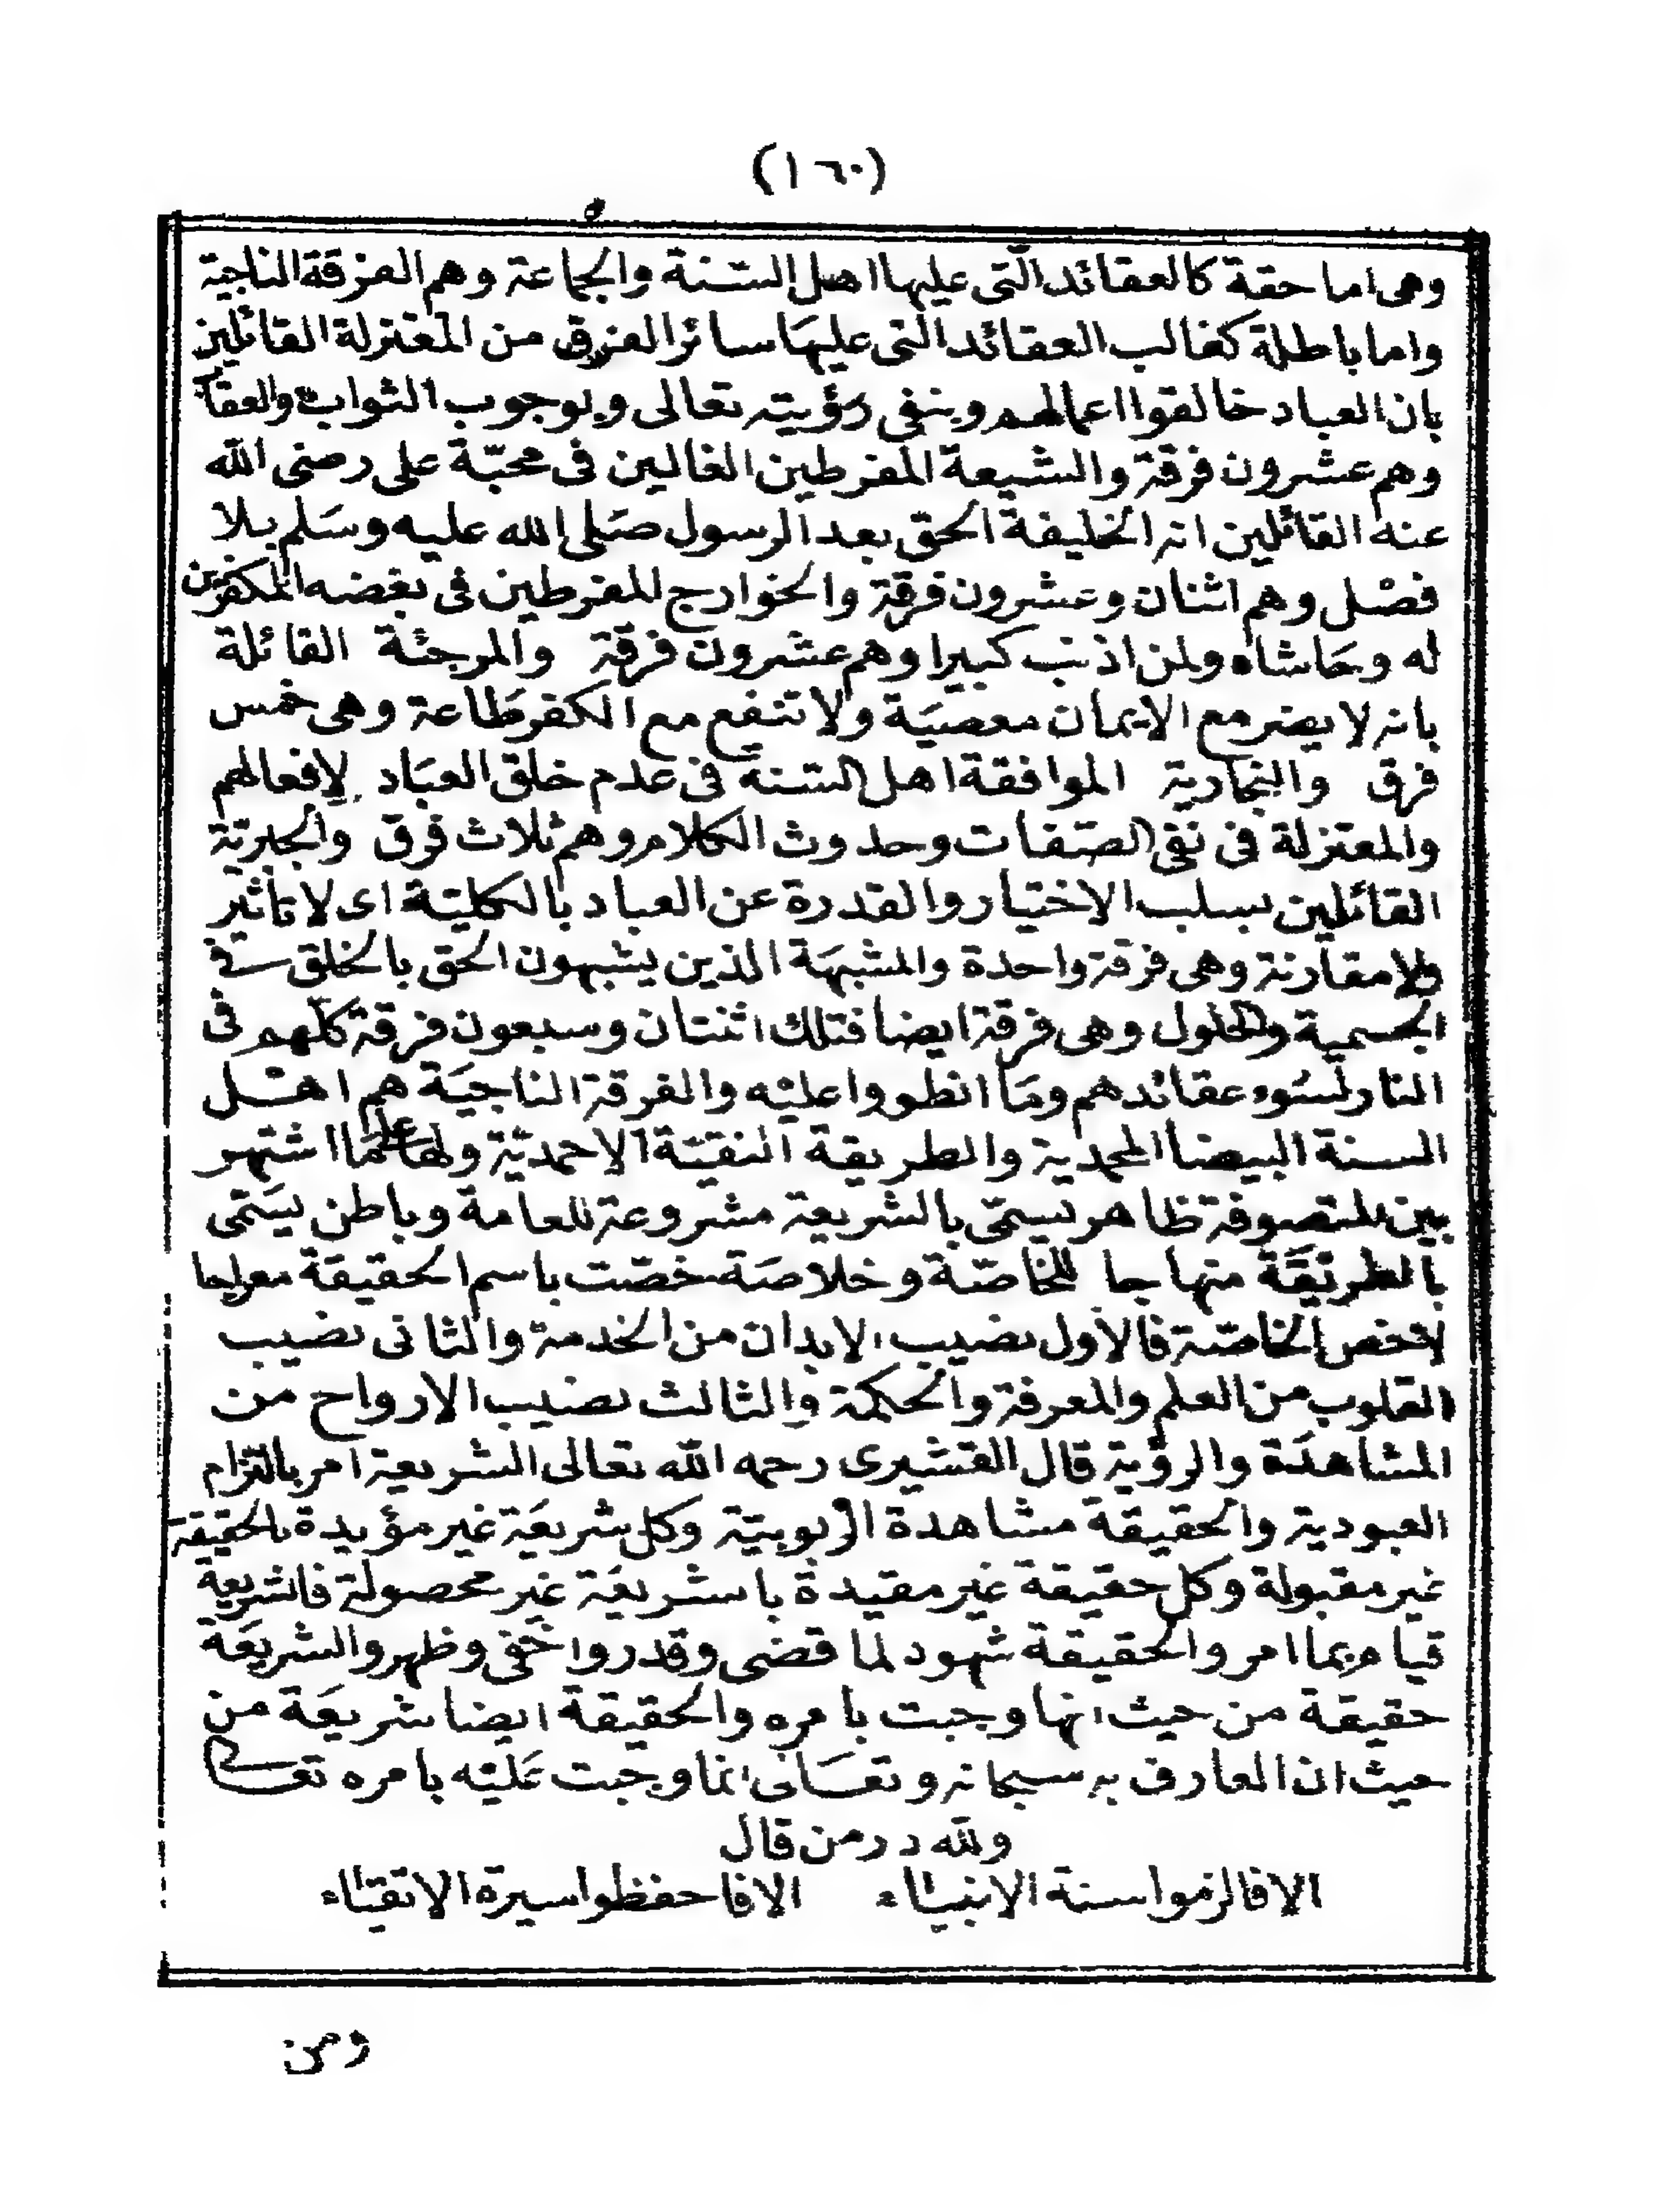 (١٦٠)
وهى اما حقة كالعقائد الّتى عليها اهل السّنة والجماعة وهم الفرقة الناجية
واما باطلة كغالب العقائد التى عليهَا سائر الفرق من المعتزلة القائلين
بان العباد خالقوا اعمالهم وبنفى رؤيته تعالى وبوجوب الثواب والعقاب
وهم عشرون فرقة والشيعة المفرطين الغالين فى محبّة على رضى الله
عنه القائلين انه الخليفة الحق بعد الرسول صَلى الله عليه وسَلم بلا
فصْل وهم اثنان وعشرون فرقة والخوارج المفرطين فى بغضه المكفرين
له وحَاشاه ولمن اذنب كبيرا وهم عشرون فرقة والمرجئة القائلة
بانه لا يضر مع الايمان معصيَة ولا تنفع مع الكفر طَاعة وهى خمس
فرق والنجارية الموافقة اهل السّنة فى عدم خلق العبَاد لافعالهم
والمعتزلة فى نفى الصّفات وحدوث الكلام وهم ثلاث فرق والجبريّة
القائلين بسلب الاختيار والقدرة عن العباد بالكليّة اى لا تاثير
ولا مقارنة وهى فرقة واحدة والمشبهَة الذين يشبهون الحق بالخلق فى
الجسمية والحلول وهى فرقة ايضا فتلك اثنتان وسبعون فرقة كلّهم فى
النار لسُوء عقائدهم ومَا انطووا عليْه والفرقة الناجيَة هم اهْل
السنة البيضا المحمدية والطريقة النقيّة الاحمديّة ولها على مَا اشتهر
بين المتصوفة ظاهر يسمّى بالشريعة مشروعة للعامة وباطن يسَمّى
بالطريقَة منهاجا للخاصّة وخلاصَة خصّت باسم الحقيقة معراجا
لاخص الخاصّة فالاول نصيب الابدان من الخدمة والثانى نصيب
القلوب من العلم والمعرفة والحكمة والثالث نصيب الارواح من
المشاهدَة والرؤية قال القشيرى رحمه الله تعالى الشريعة امر بالتزام
العبودية والحقيقة مشاهدة الربوبيّة وكل شريعَة غير مؤيدة بالحقيقة
غير مقبولة وكل حقيقة غير مقيدة بالشريعَة غير محصولة فالشريعة
قيام بما امر والحقيقة شهود لما قضى وقدر واخفى وظهر والشريعَة
حقيقة من حيث انها وجبت بامره والحقيقة ايضا شريعَة من
حيث ان المعارف به سبحانه وتعَالى انما وجبت عَليْه بامره تعالى
ولله در من قال
الا فالزموا سنة الانبيَاء الا فاحفظوا سيرة الاتقيَاء
ومن